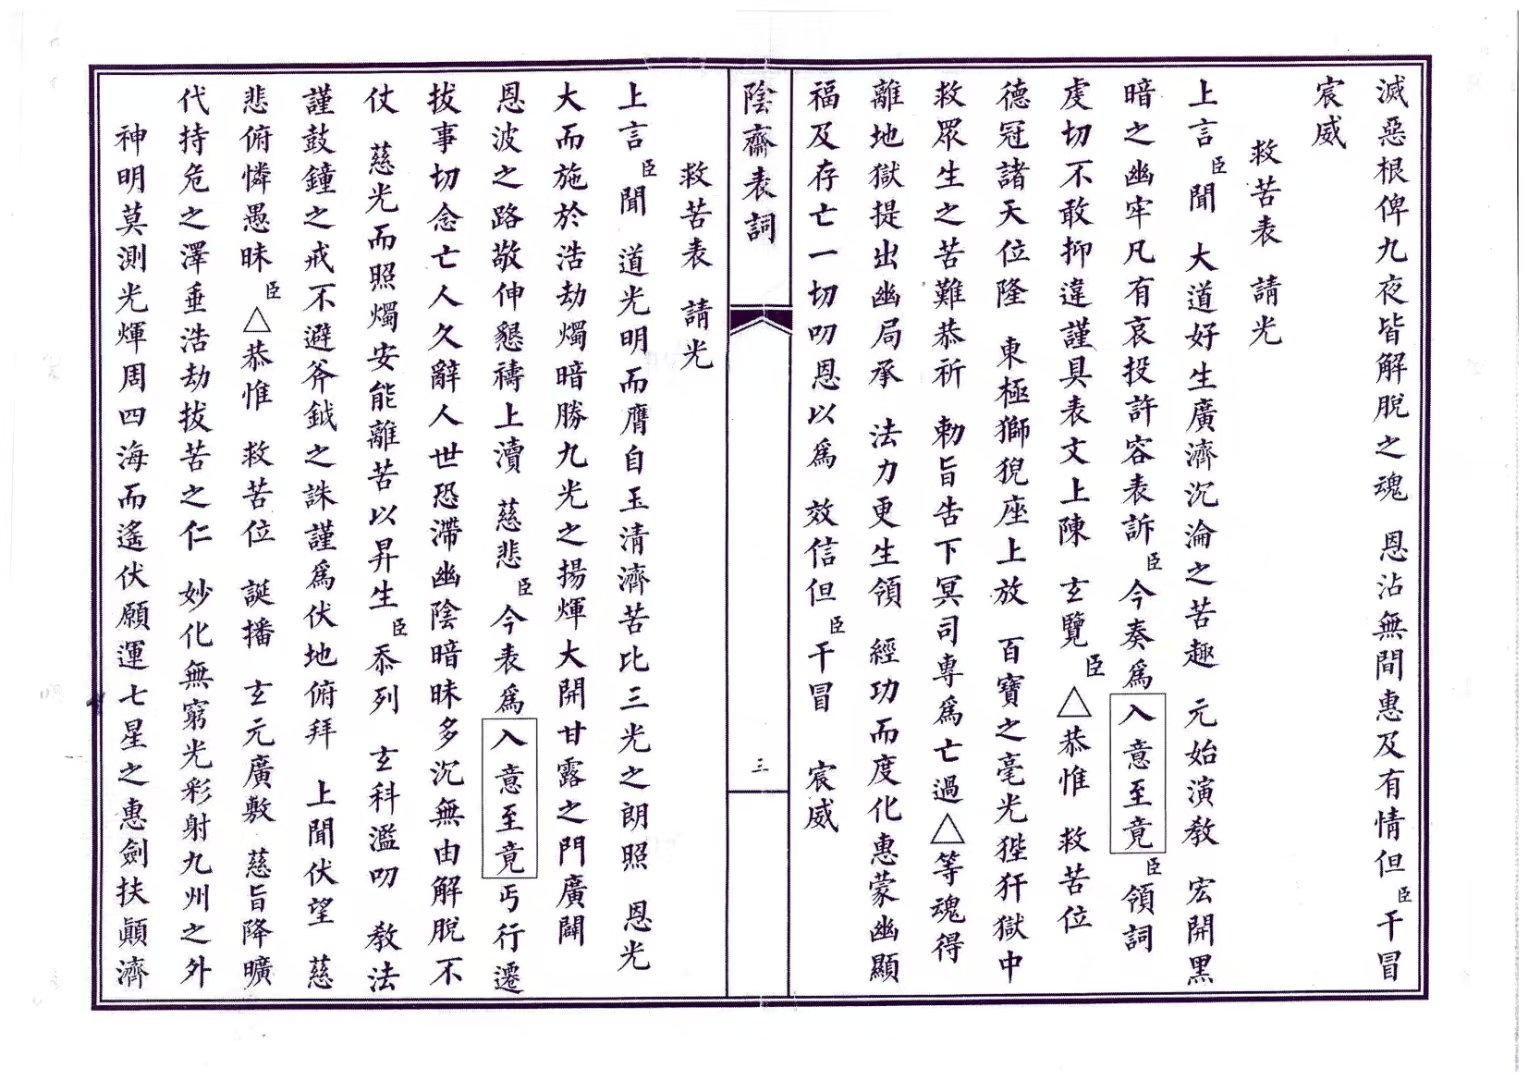 滅惡根俾九夜皆解脫之魂　恩沾無間惠及有情但臣干冒
宸威
救苦表　請光
上言臣聞　大道好生廣濟沉淪之苦趣　元始演教　宏開黑
暗之幽牢凡有哀投許容表訴臣今奏為入意至竟臣領詞
虔切不敢抑違謹具表文上陳　玄覽臣△恭惟　救苦位
德冠諸天位隆　東極獅猊座上放　百寶之毫光狴犴獄中
救眾生之苦難恭祈　勅旨告下冥司專為亡過△等魂得
離地獄提出幽局承　法力更生領　經功而度化惠蒙幽顯
福及存亡一切叨恩以為　效信但臣干冒　宸威
陰齋表詞
三
救苦表　請光
上言臣聞　道光明而膺自玉清濟苦比三光之朗照　恩光
大而施於浩劫燭暗勝九光之揚煇大開甘露之門廣闢
恩波之路敬伸懇禱上瀆　慈悲臣今表為入意至竟丐行遷
拔事切念亡人久辭人世恐滯幽陰暗昧多沉無由解脫不
仗　慈光而照燭安能離苦以昇生臣忝列　玄科濫叨　教法
謹鼓鐘之戒不避斧鉞之誅謹為伏地俯拜　上聞伏望　慈
悲俯憐愚昧臣△恭惟　救苦位　誕播　玄元廣敷　慈旨降曠
代持危之澤垂浩劫拔苦之仁　妙化無窮光彩射九州之外
神明莫測光煇周四海而遙伏願運七星之惠劍扶顛濟